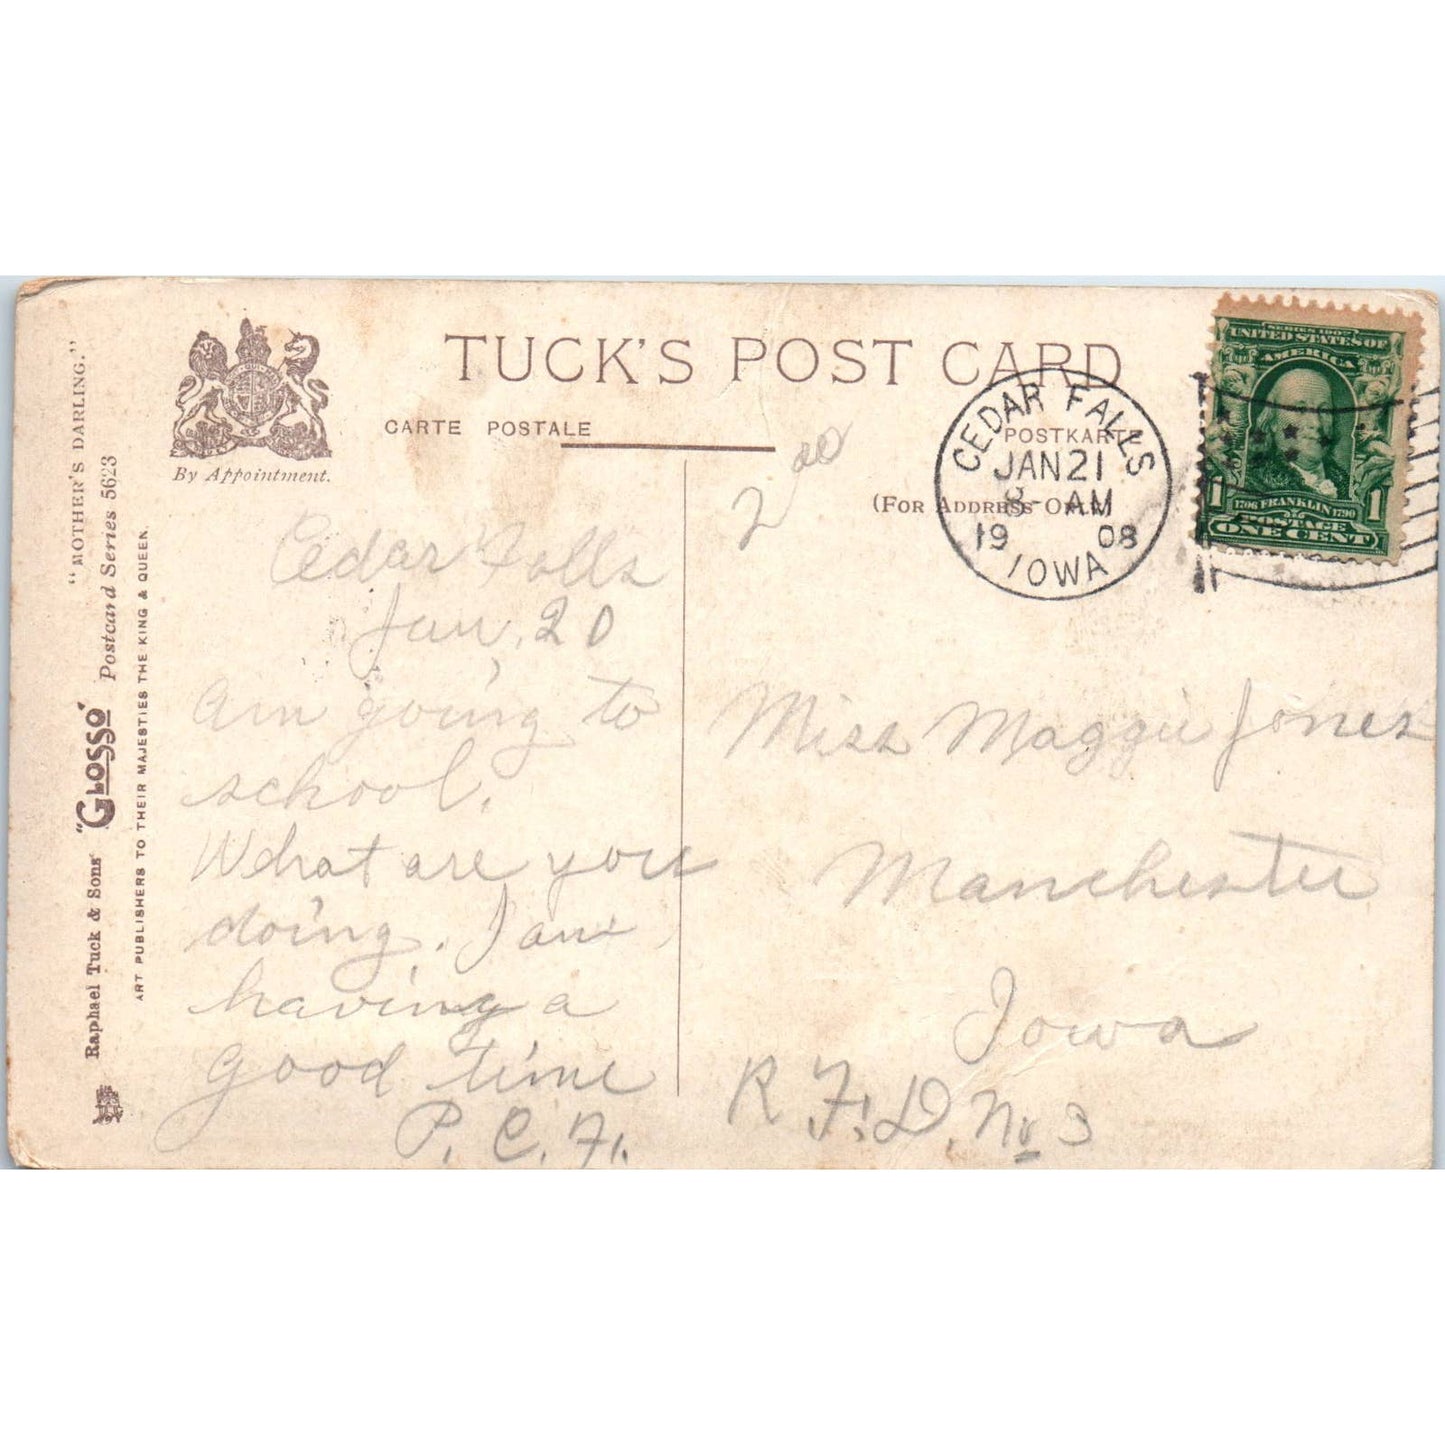 TUCK'S POST CARD
CARTE POSTALE
POSTKARTE
(FOR ADDRESS ONLY)
By Appointment.
"MOTHER'S DARLING."
Raphael Tuck & Sons' "GLOSSO" Postcard Series 5623
ART PUBLISHERS TO THEIR MAJESTIES THE KING & QUEEN.
CEDAR FALLS
JAN 21
8- AM
19 08
IOWA
SERIES 1902
UNITED STATES OF
AMERICA
1706 FRANKLIN 1790
POSTAGE
1 ONE CENT 1
2 00
Cedar Falls
Jan. 20
Am going to
school.
What are you
doing. I am
having a
good time
P. C. F.
Miss Maggie Jones
Manchester
Iowa
R. F. D. No 3